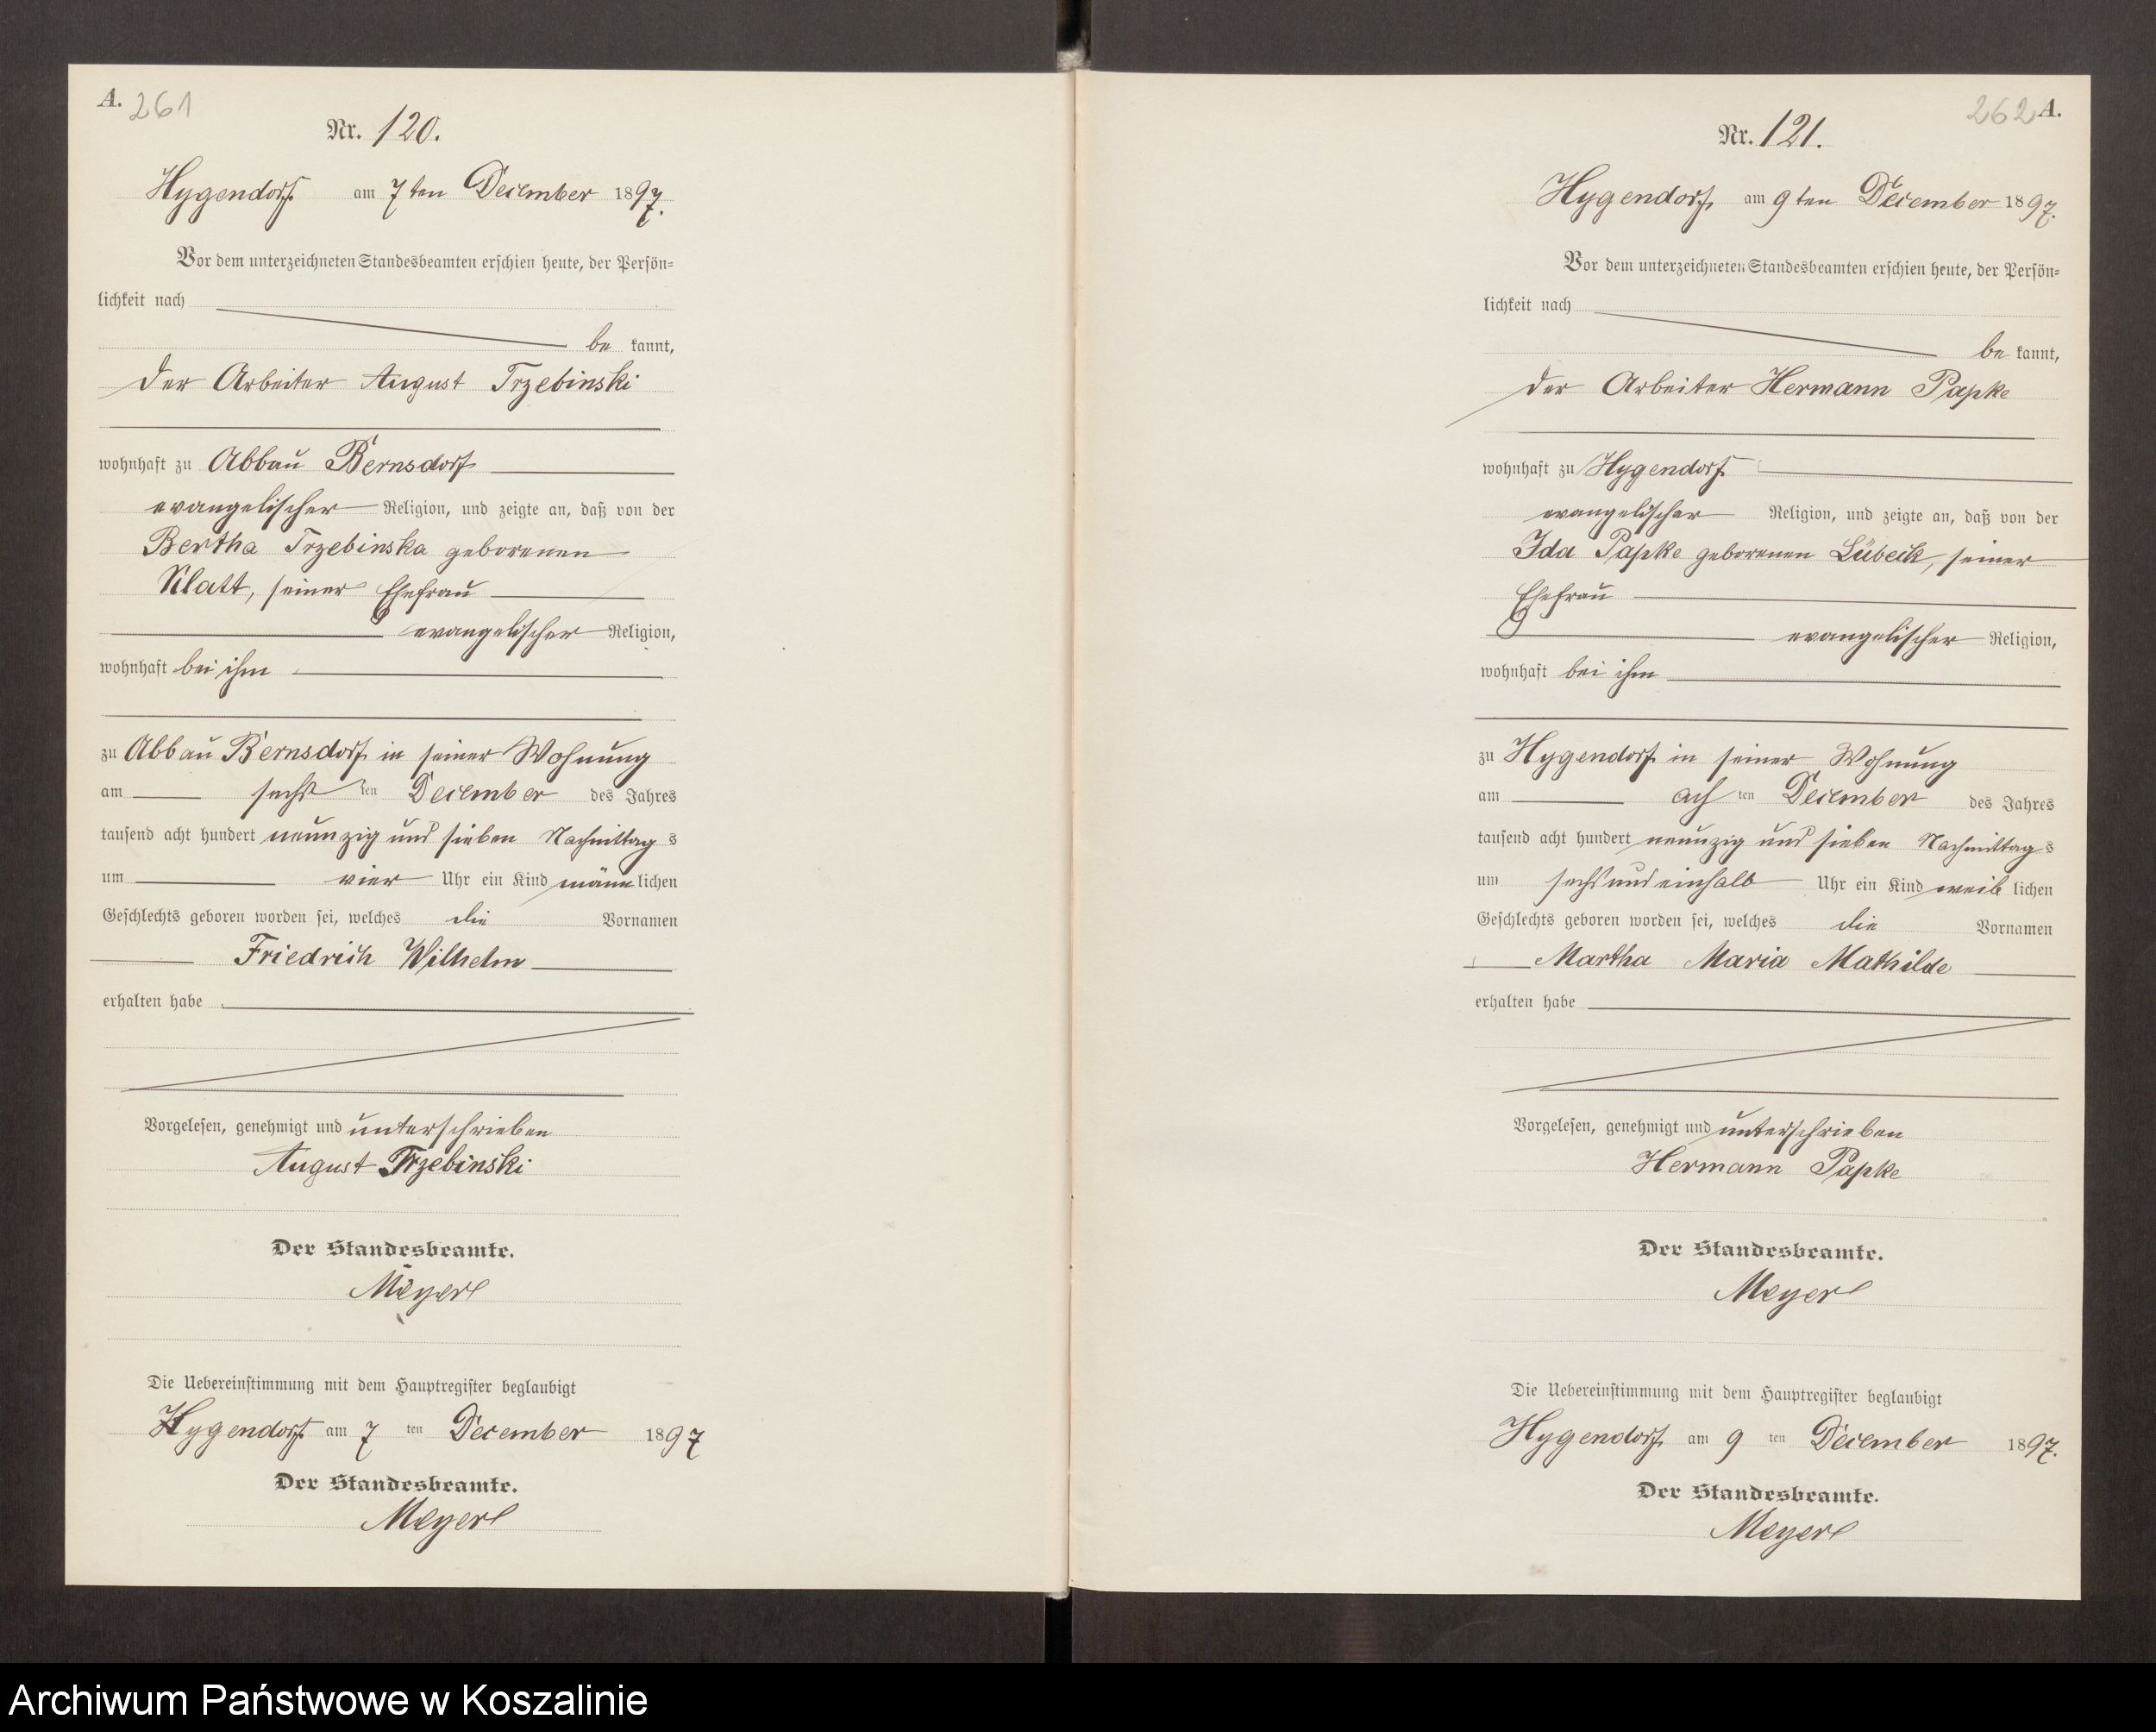 A. 261
Nr. 120.
Hygendorf am 7ten December 1897.
Vor dem unterzeichneten Standesbeamten erschien heute, der Persön=
lichkeit nach
be kannt,
der Arbeiter August Trzebinski
wohnhaft zu Abbau Bernsdorf
evangelischer Religion, und zeigte an, daß von der
Bertha Trzebinska geborenen
Klatt, seiner Ehefrau
evangelischer Religion,
wohnhaft bei ihm
zu Abbau Bernsdorf in seiner Wohnung
am sechsten December des Jahres
tausend acht hundert neunzig und sieben Nachmittags
um vier Uhr ein Kind männlichen
Geschlechts geboren worden sei, welches die Vornamen
Friedrich Wilhelm
erhalten habe
Vorgelesen, genehmigt und unterschrieben
August Trzebinski
Der Standesbeamte.
Meyer
Die Uebereinstimmung mit dem Hauptregister beglaubigt
Hygendorf am 7 ten December 1897
Der Standesbeamte.
Meyer
262 A.
Nr. 121.
Hygendorf, am 9ten December 1897.
Vor dem unterzeichneten Standesbeamten erschien heute, der Persön=
lichkeit nach
be kannt,
der Arbeiter Hermann Papke
wohnhaft zu Hygendorf
evangelischer Religion, und zeigte an, daß von der
Ida Papke geborenen Lübeck, seiner
Ehefrau
evangelischer Religion,
wohnhaft bei ihm
zu Hygendorf in seiner Wohnung
am achten December des Jahres
tausend acht hundert neunzig und sieben Nachmittags
um sechs und einhalb Uhr ein Kind weiblichen
Geschlechts geboren worden sei, welches die Vornamen
Martha Maria Mathilde
erhalten habe
Vorgelesen, genehmigt und unterschrieben
Hermann Papke
Der Standesbeamte.
Meyer
Die Uebereinstimmung mit dem Hauptregister beglaubigt
Hygendorf am 9 ten December 1897.
Der Standesbeamte.
Meyer
Archiwum Państwowe w Koszalinie